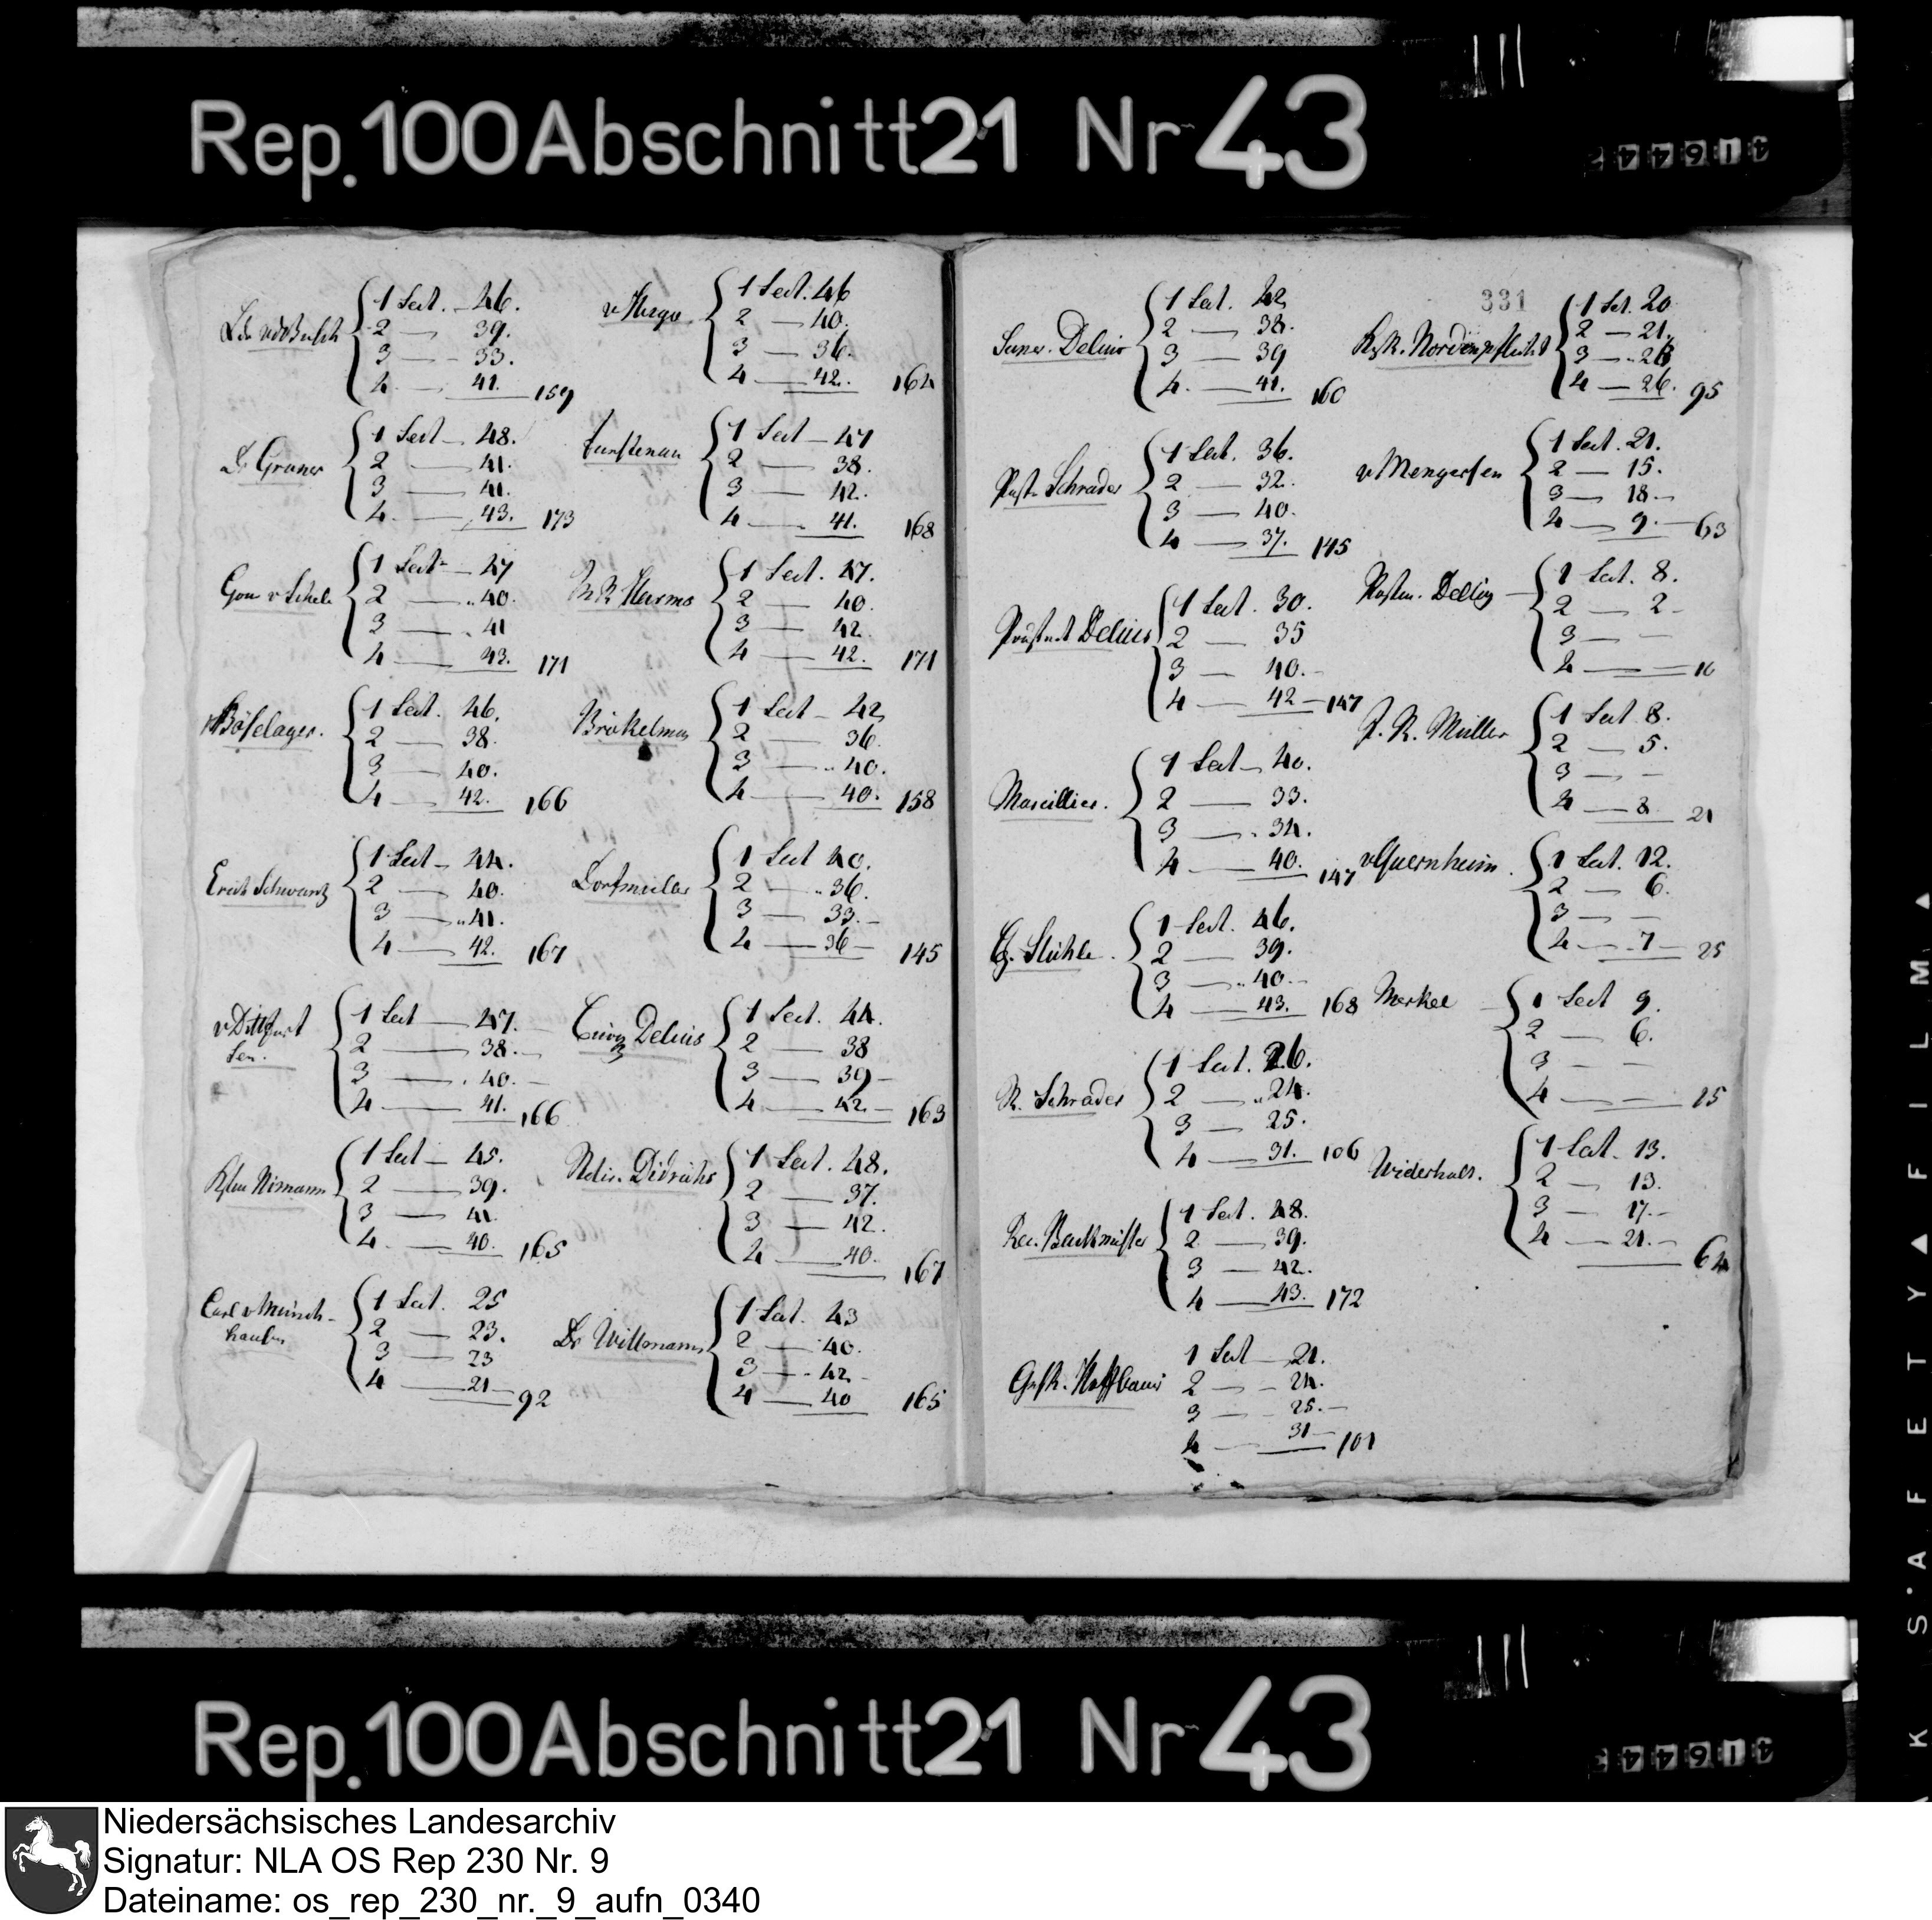 Rep. 100 Abschnitt 21 Nr 43
1 Sect. 46.
2 — 39.
3 — 33.
4. — 41. 159
Dr Gruner
1 Sect — 48.
2 — 41.
3 — 41.
4. — 43. 173
1 Sect — 47
2 — 40.
3 — 41
4 — 43. 171
v Böselager.
1 Sect. 46.
2 — 38.
3 — 40.
4 — 42. 166
Erich Schwartz
1 Sect — 44.
2 — 40.
3 — 41.
4 — 42. 167
v Dittfurt
Sen.
1 Sect — 47.
2 — 38.
3 — 40.
4 — 41. 166
Nimann
1 Sect — 45.
2 — 39.
3 — 41.
4. — 40. 165
Carl v Münch-
hausen
1 Sect. 25
2 — 23.
3 — 23
4 — 21 — 92
1 Sect. 46
2 — 40.
3 — 36.
4 — 42. 164
Furstenau
1 Sect — 47
2 — 38.
3 — 42.
4 — 41. 168
Harms
1 Sect. 47.
2 — 40.
3 — 42.
4 — 42. 171
Brökelman
1 Sect — 42
2 — 36.
3 — 40.
4 — 40. 158
Dorfmüller
1 Sect 40.
2 — 36.
3 — 33.
4 — 36 — 145
Delius
1 Sect. 44.
2 — 38
3 — 39 —
4 — 42 — 163
Didrichs
1 Sect. 48.
2 — 37.
3 — 42.
4 — 40. 167
Dr Willmanns
1 Sect. 43
2 — 40.
3 — 42.
4 — 40 165
Delius
1 Sect. 42
2 — 38.
3 — 39
4. — 41. 160
Past. Schrader
1 Sect. 36.
2 — 32.
3 — 40.
4 — 37. 145
Delius
1 Sect. 30.
2 — 35
3 — 40. —
4 — 42 — 147
Marcillier.
1 Sect — 40.
2 — 33.
3 — 34.
4 — 40. 147
Stühle.
1 Sect. 46.
2 — 39.
3 — 40. —
4 — 43. 168
R. Schrader
1 Sect. 26.
2 — 24.
3 — 25.
4 — 31. 106
1 Sect. 48.
2 — 39.
3 — 42.
4 — 43. 172
1 Sect — 21.
2 — 24.
3 — 25. —
4 — 31 — 101
331
Nordenpflicht
1 Sct. 20
2 — 21.
4 — 26. 95
v Mengersen
1 Sect. 21.
2 — 15.
3 — 18 —
4 — 9. — 63
1 Sect. 8.
2 — 2 —
3 — —
4 — — 10
P. R. Müller
1 Sect 8.
2 — 5.
3 — —
4 — 8 21
v Quernheim.
1 Sect. 12.
2 — 6.
3 — —
4 — 7 — 25
Merkel
1 Sect 9.
2 — 6.
3 — —
4 — — 15
Widerholt.
1 Sect. 13.
2 — 13.
3 — 17. —
4 — 21. —
64
Rep. 100 Abschnitt 21 Nr 43
SAFETY ▲ FILM ▲
Niedersächsisches Landesarchiv
Signatur: NLA OS Rep 230 Nr. 9
Dateiname: os_rep_230_nr._9_aufn_0340